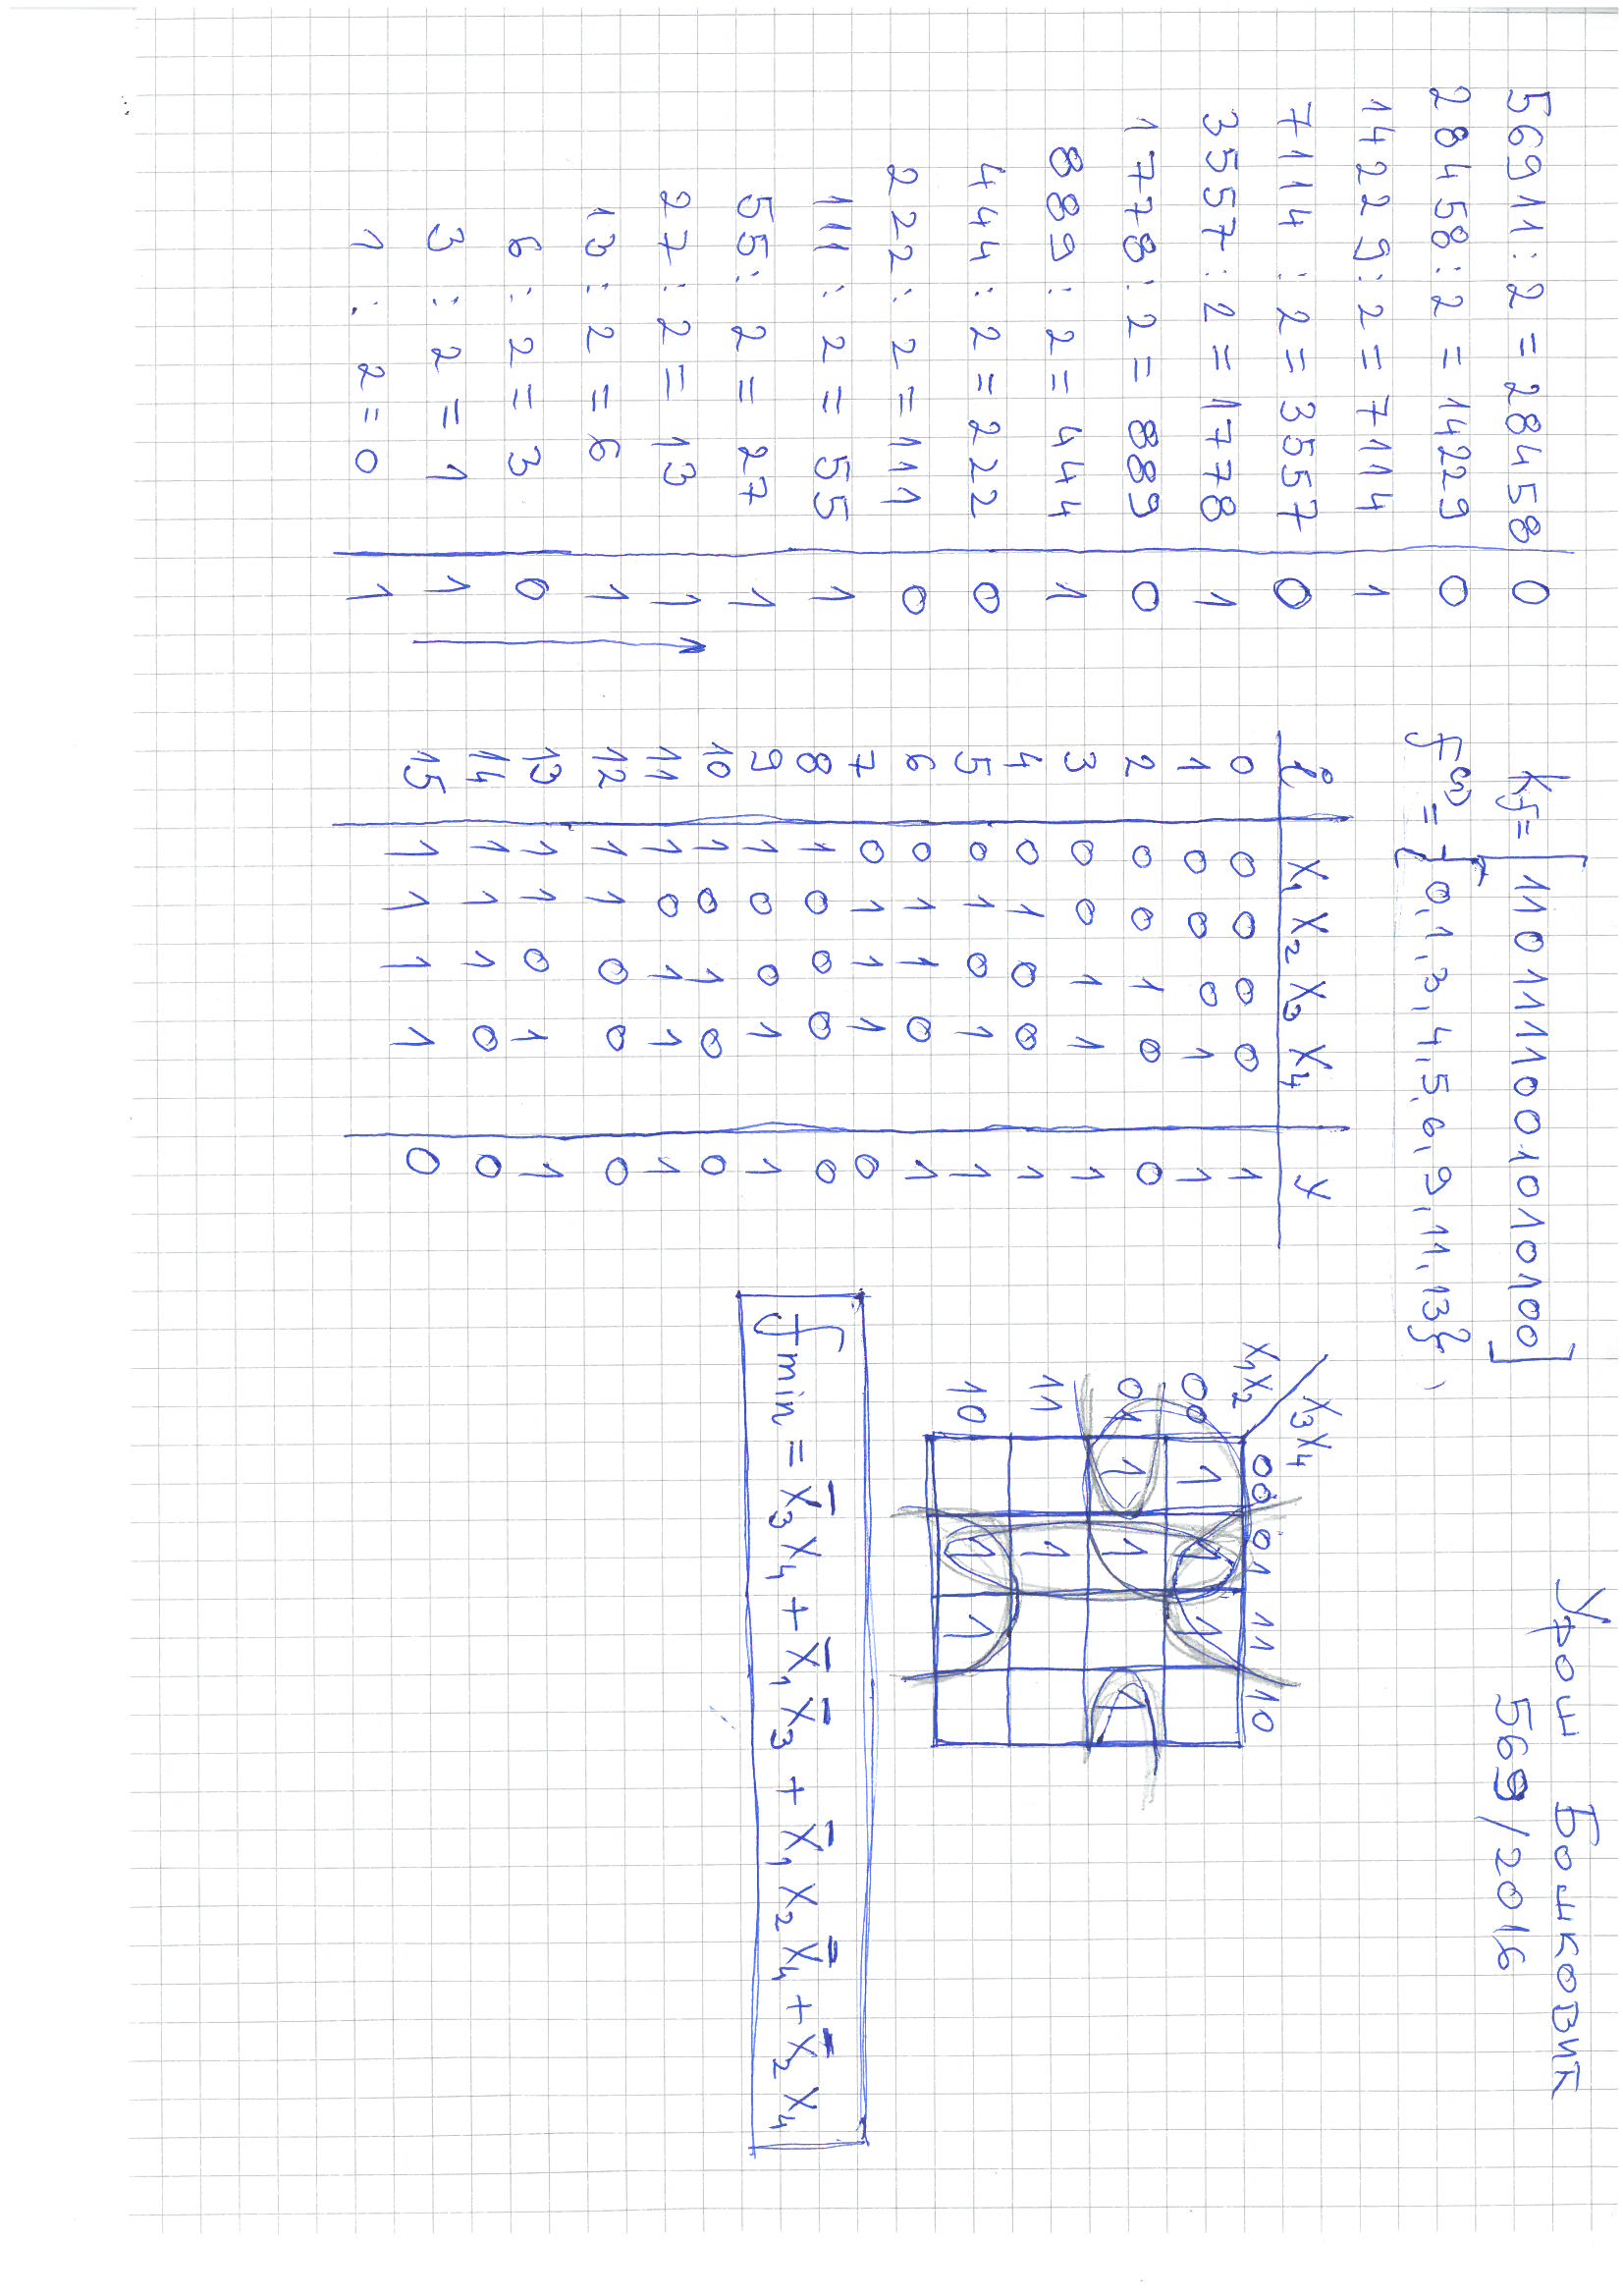 Урош Бошковић
569/2016
56911 : 2 = 28458 | 0
28458 : 2 = 14229 | 0
14229 : 2 = 7114 | 1
7114 : 2 = 3557 | 0
3557 : 2 = 1778 | 1
1778 : 2 = 889 | 0
889 : 2 = 444 | 1
444 : 2 = 222 | 0
222 : 2 = 111 | 0
111 : 2 = 55 | 1
55 : 2 = 27 | 1
27 : 2 = 13 | 1
13 : 2 = 6 | 1
6 : 2 = 3 | 0
3 : 2 = 1 | 1
1 : 2 = 0 | 1
Kf = [1101111001010100]
f⁽¹⁾ = {0, 1, 3, 4, 5, 6, 9, 11, 13}
i | X₁ X₂ X₃ X₄ | y
0 | 0 0 0 0 | 1
1 | 0 0 0 1 | 1
2 | 0 0 1 0 | 0
3 | 0 0 1 1 | 1
4 | 0 1 0 0 | 1
5 | 0 1 0 1 | 1
6 | 0 1 1 0 | 1
7 | 0 1 1 1 | 0
8 | 1 0 0 0 | 0
9 | 1 0 0 1 | 1
10 | 1 0 1 0 | 0
11 | 1 0 1 1 | 1
12 | 1 1 0 0 | 0
13 | 1 1 0 1 | 1
14 | 1 1 1 0 | 0
15 | 1 1 1 1 | 0
X₃X₄
X₁X₂ 00 01 11 10
00 1 1 1
01 1 1 1
11 1
10 1 1
fmin = X̄₃X₄ + X̄₁X̄₃ + X̄₁X₂X̄₄ + X̄₂X₄